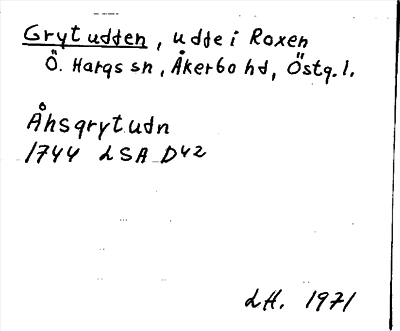 Grytudden, udde i Roxen
Ö. Hargs sn, Åkerbo hd, Östg. l.
Åhsgrytudn
1744 LSA D42
LH. 1971